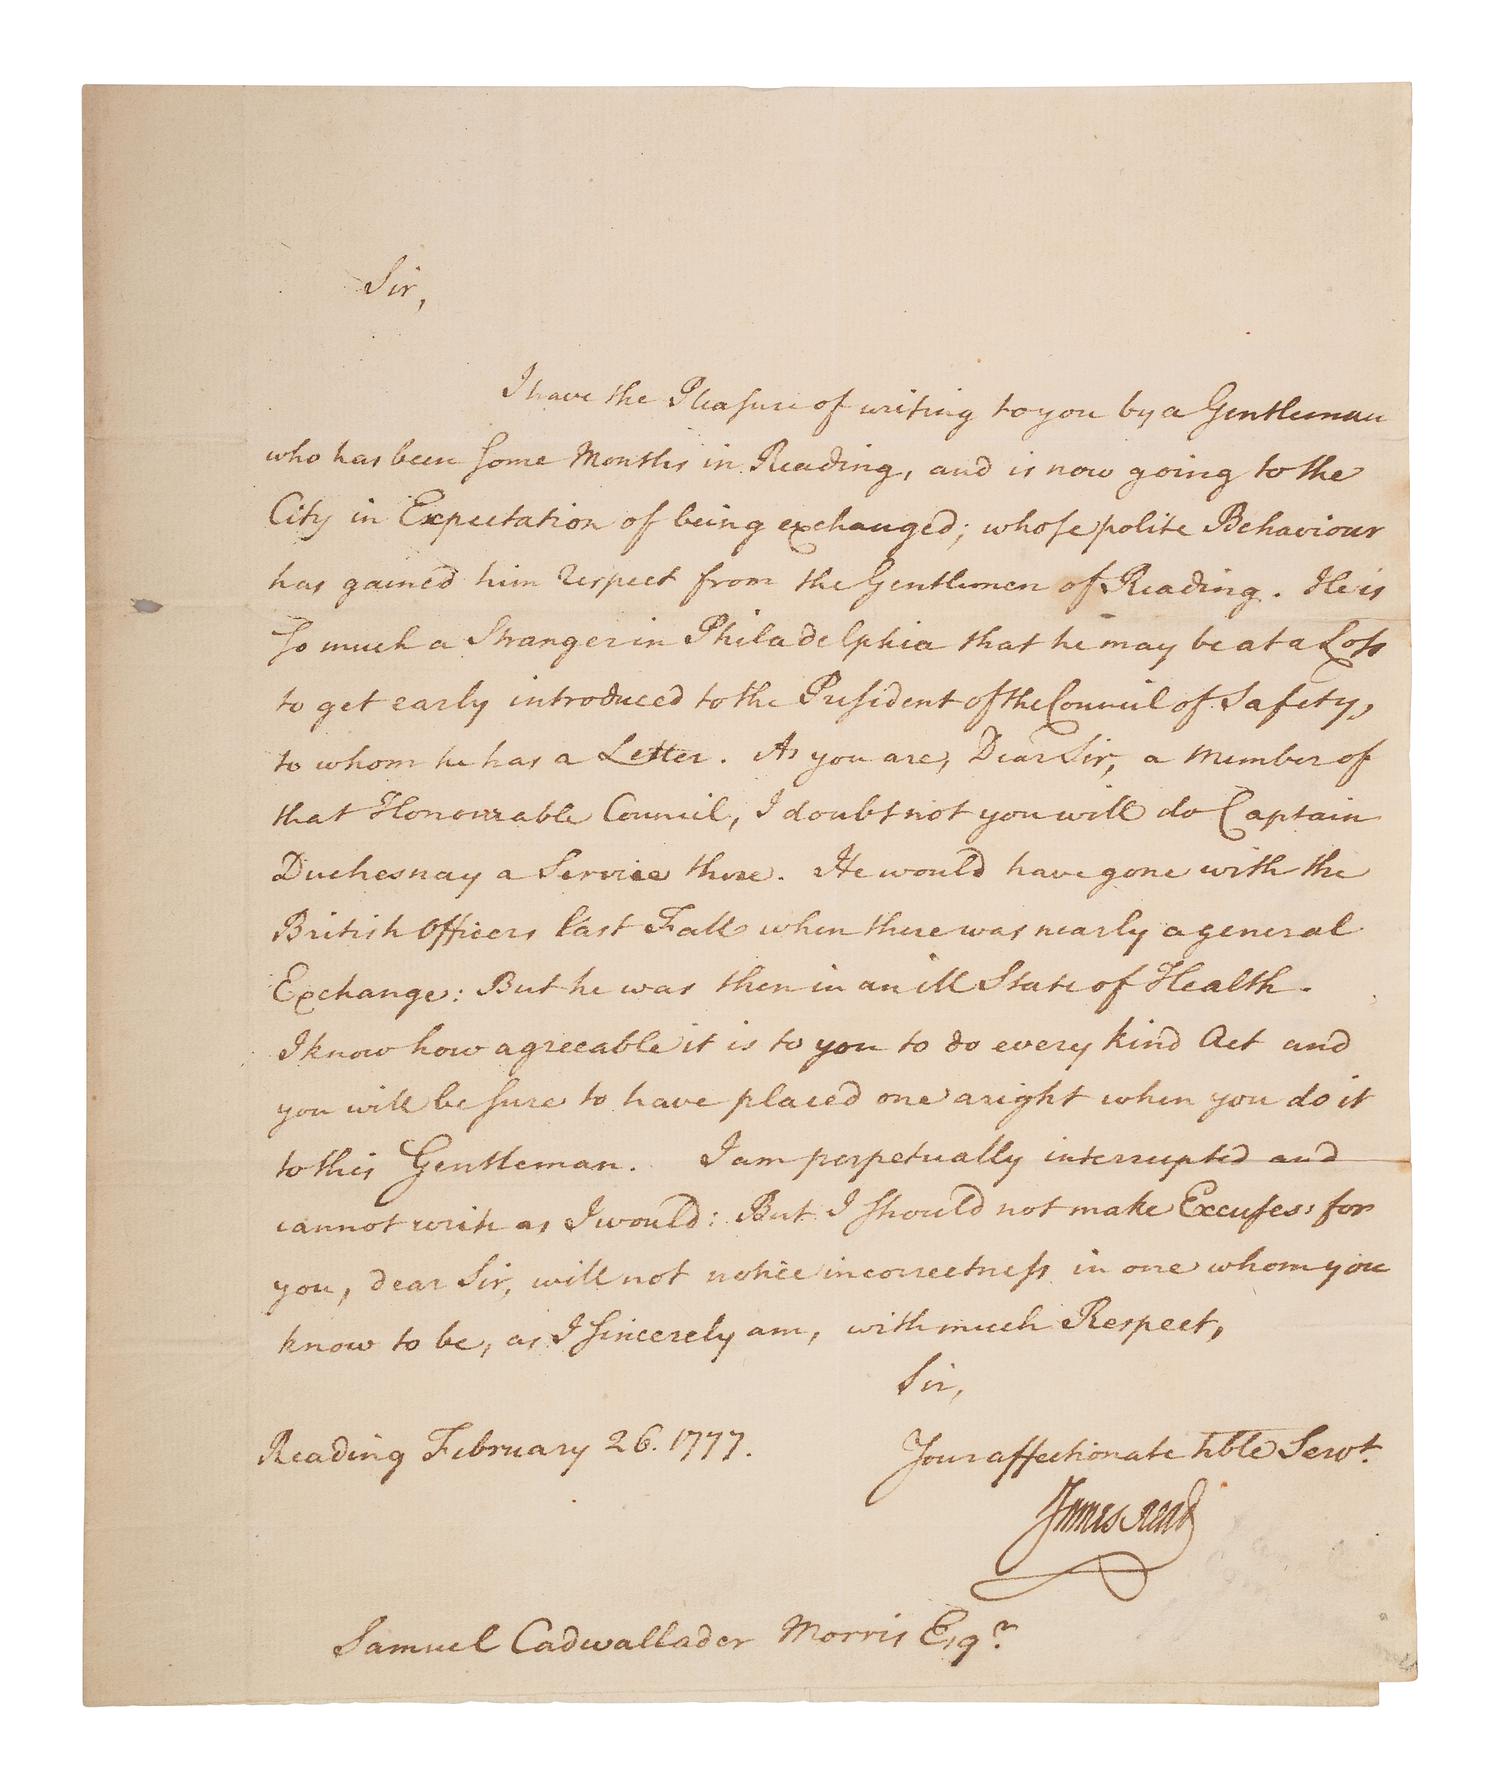 Sir,
I have the Pleasure of writing to you by a Gentleman
who has been some Months in Reading, and is now going to the
City in Expectation of being exchanged; whose polite Behaviour
has gained him respect from the Gentlemen of Reading. He is
so much a Stranger in Philadelphia that he may be at a Loss
to get early introduced to the President of the Council of Safety,
to whom he has a Letter. As you are, Dear Sir, a Member of
that Honourable Council, I doubt not you will do Captain
Duchesnay a Service there. He would have gone with the
British Officers last Fall when there was nearly a general
Exchange: But he was then in an ill State of Health.
I know how agreeable it is to you to do every kind Act and
you will be sure to have placed one aright when you do it
to this Gentleman. I am perpetually interrupted and
cannot write as I would: But I should not make Excuses: for
you, dear Sir, will not notice incorrectness in one whom you
know to be, as I sincerely am, with much Respect,
Sir,
Reading February 26. 1777. Your affectionate hble Servt.
James Read
Samuel Cadwallader Morris Esqr.